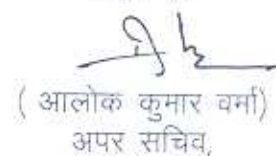 ( आलोक कुमार वर्मा)
अपर सचिव,